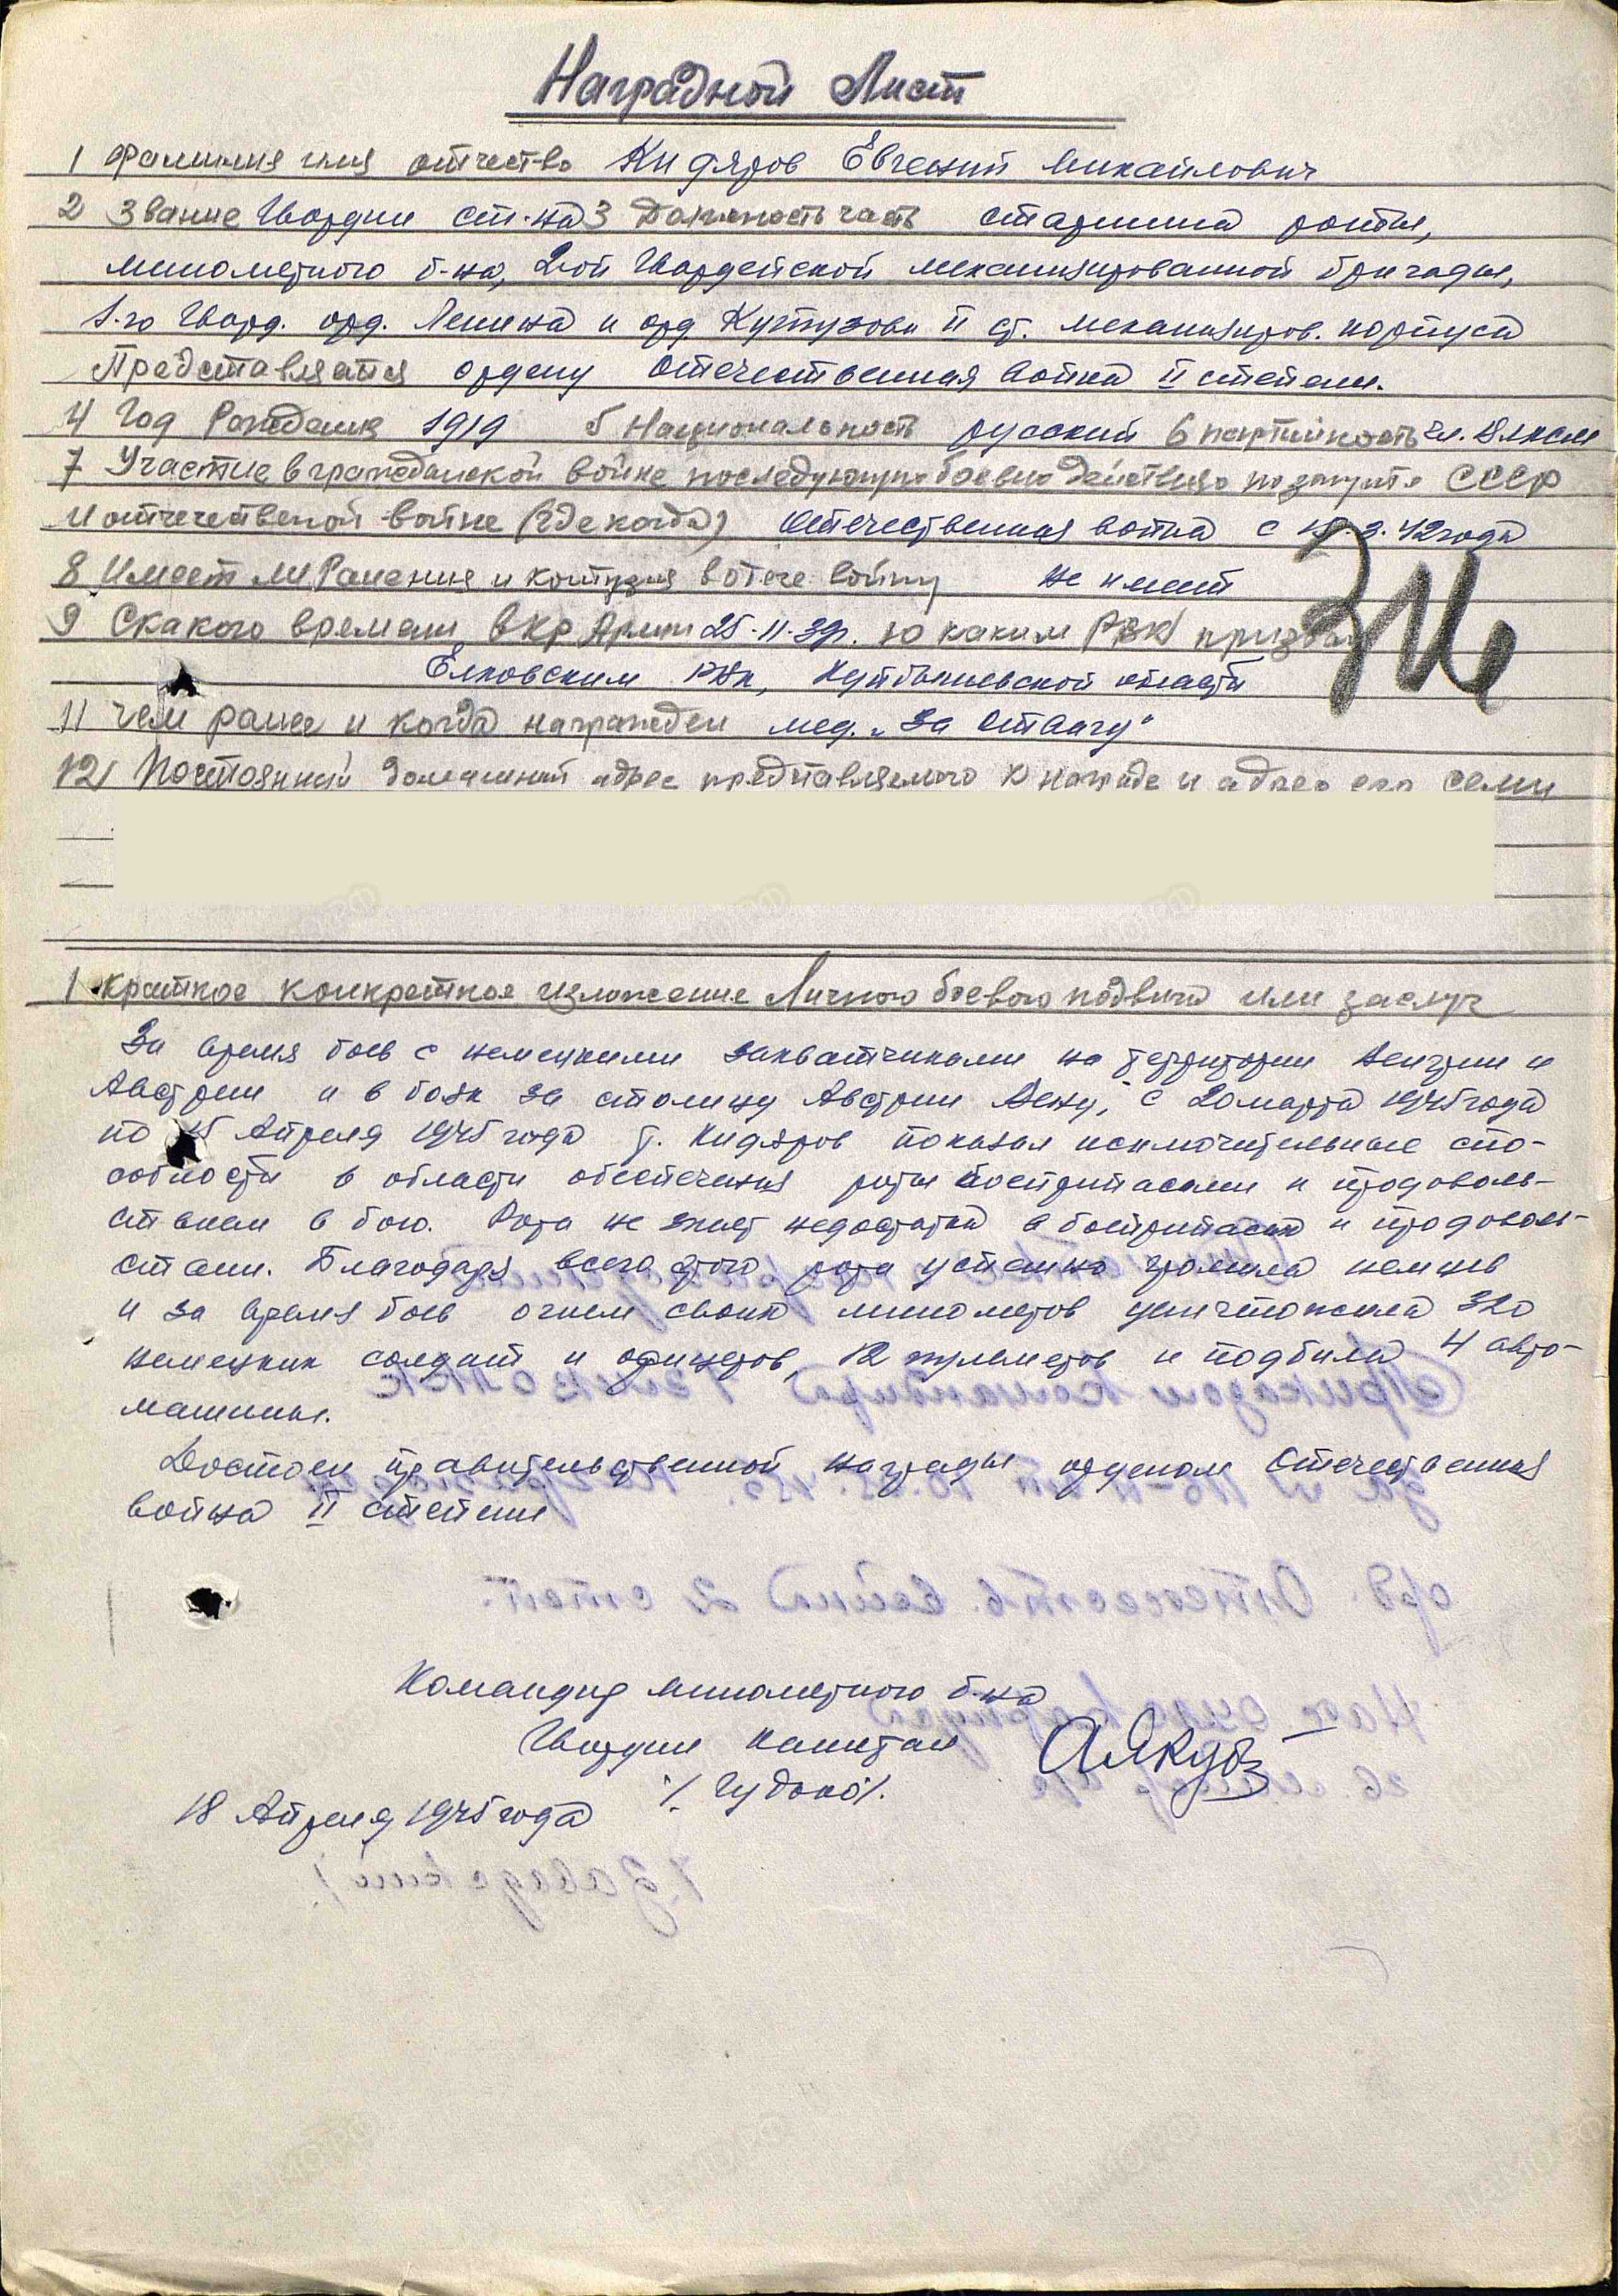 Наградной Лист
1 Фамилия имя отчество Кидяров Евгений Михайлович
2 Звание Гвардии ст-на 3 Должность часть старшина роты,
минометного б-на, 2-ой Гвардейской механизированной бригады,
1-го Гвард. орд. Ленина и орд. Кутузова II ст. механизиров. корпуса
Представляется ордену Отечественная война II степени.
4 Год Рождения 1919 5 Национальность русский 6 партийность чл. ВЛКСМ
7 Участие в гражданской войне последующие боевые действия по защите СССР
и отечественой войне (где когда) Отечественная война с 3.42 года
8 Имеет ли Ранения и контузия в отече войну не имеет
9 Скакого времени в Кр Армии 25.11.39г. 10 каким РВК призван
314
Елховским РВК, Куйбышевской области
11 чем ранее и когда награжден мед. „За Отвагу"
12 Постоянный домашний адрес представляемого к награде и адрес его семи
1 краткое конкретное изложение Личного боевого подвига или заслуг
За время боев с немецкими захватчиками на территории Венгрии и
Австрии и в боях за столицу Австрии Вену, с 20 марта 1945 года
по 15 Апреля 1945 года т. Кидяров показал исключительные спо-
собности в области обеспечения роты боеприпасами и продоволь-
ствием в бою. Рота не знает недостатка в боеприпасах и продоволь-
ствии. Благодаря всего этого рота успешно громила немцев
и за время боев огнем своих минометов уничтожила 320
немецких солдат и офицеров, 12 пулеметов и подбила 4 авто-
машины.
Достоен правительственной награды орденом Отечественная
война II степени
Командир минометного б-на
Гвардии капитан
/. Гудако /.
18 Апреля 1945 года